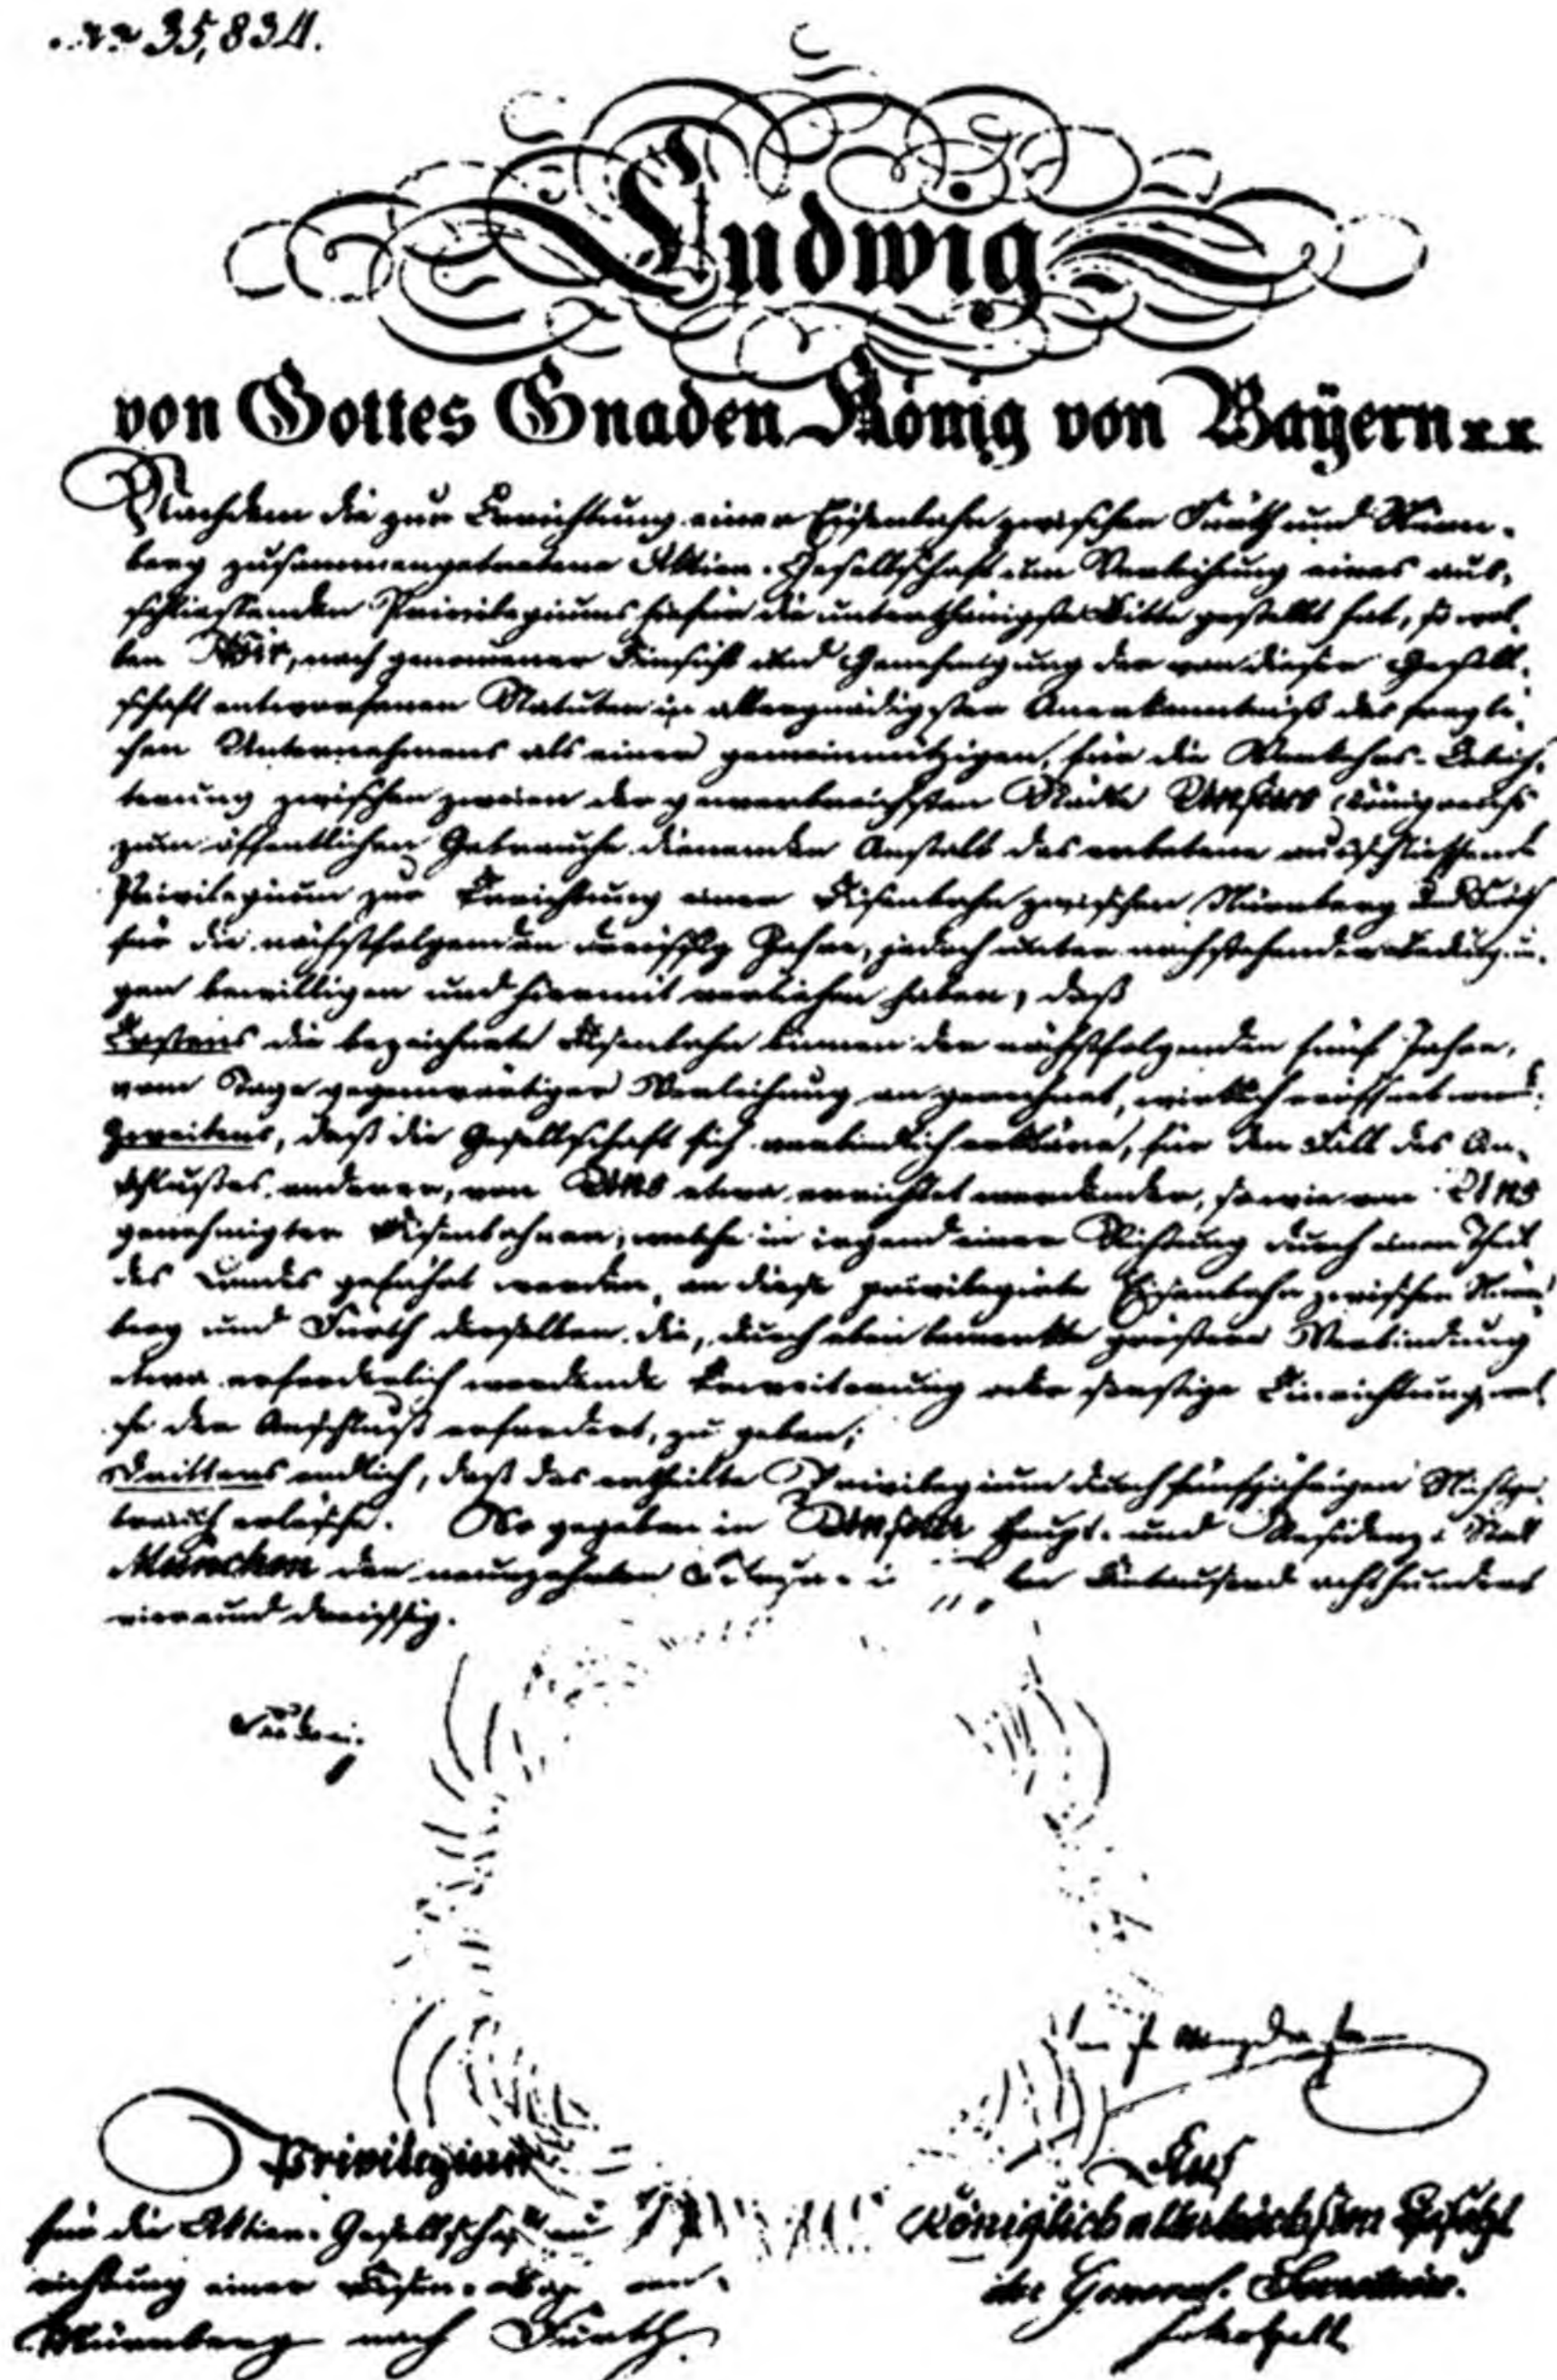 35,834.
Ludwig
von Gottes Gnaden König von Bayern
Nachdem die zur Errichtung einer Eisenbahn zwischen Fürth und Nürn-
berg zusammengetretene Aktien-Gesellschaft um Verleihung eines aus-
schliessenden Privilegiums hiefür die unterthänigste Bitte gestellt hat, so wol-
len Wir, nach genommener Einsicht und Genehmigung der von dieser Gesell-
schaft entworfenen Statuten in allergnädigster Anerkenntniß des fragli-
chen Unternehmens als einer gemeinnützigen, für die Verkehrs-Erleich-
terung zwischen zweien der gewerbreichsten Städte Unseres Königreichs
zum öffentlichen Gebrauche dienenden Anstalt das erbetene ausschliessende
Privilegium zur Errichtung einer Eisenbahn zwischen Nürnberg und Fürth
für die nächstfolgenden dreissig Jahre, jedoch unter nachstehenden Bedingun-
gen bewilligen und hiermit verliehen haben, daß
Erstens die bezeichnete Eisenbahn binnen der nächstfolgenden fünf Jahre,
vom Tage gegenwärtiger Verleihung an gerechnet, wirklich eröffnet werde;
Zweitens, daß die Gesellschaft sich verbindlich erkläre, für den Fall des An-
schlußes anderer, von Uns etwa errichtet werdender, sowie von Uns
genehmigter Eisenbahnen, welche in irgend einer Richtung durch einen Theil
des Landes geführt werden, an diese privilegirte Eisenbahn zwischen Nürn-
berg und Fürth derselben die, durch eben bemerkte größere Verbindung
etwa erforderlich werdende Erweiterung oder sonstige Einrichtung, wel-
che der Anschluß erfordert, zu geben;
Drittens endlich, daß das ertheilte Privilegium durch fünfjährigen Nichtge-
brauch erlösche. So gegeben in Unserer Haupt- und Residenz-Stadt
München den neunzehnten Eintausend achthundert
vier und dreissig.
Ludwig
Privilegium
für die Aktien-Gesellschaft zur
richtung einer Eisen-Bahn von
Nürnberg nach Fürth.
Auf
Königlich allerhöchsten Befehl
der General-Secretär.